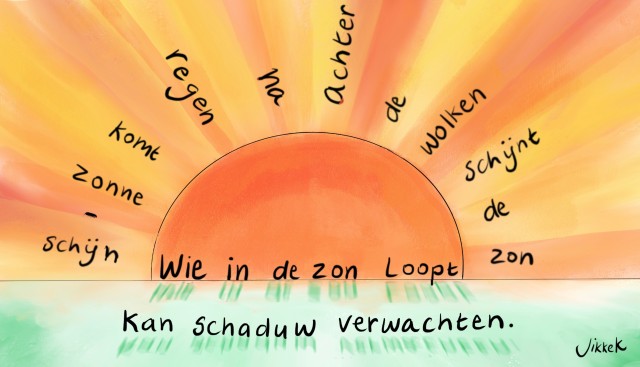 na regen komt zonne - schijn
achter de wolken schijnt de zon
Wie in de zon Loopt
Kan schaduw verwachten.
Jikkek